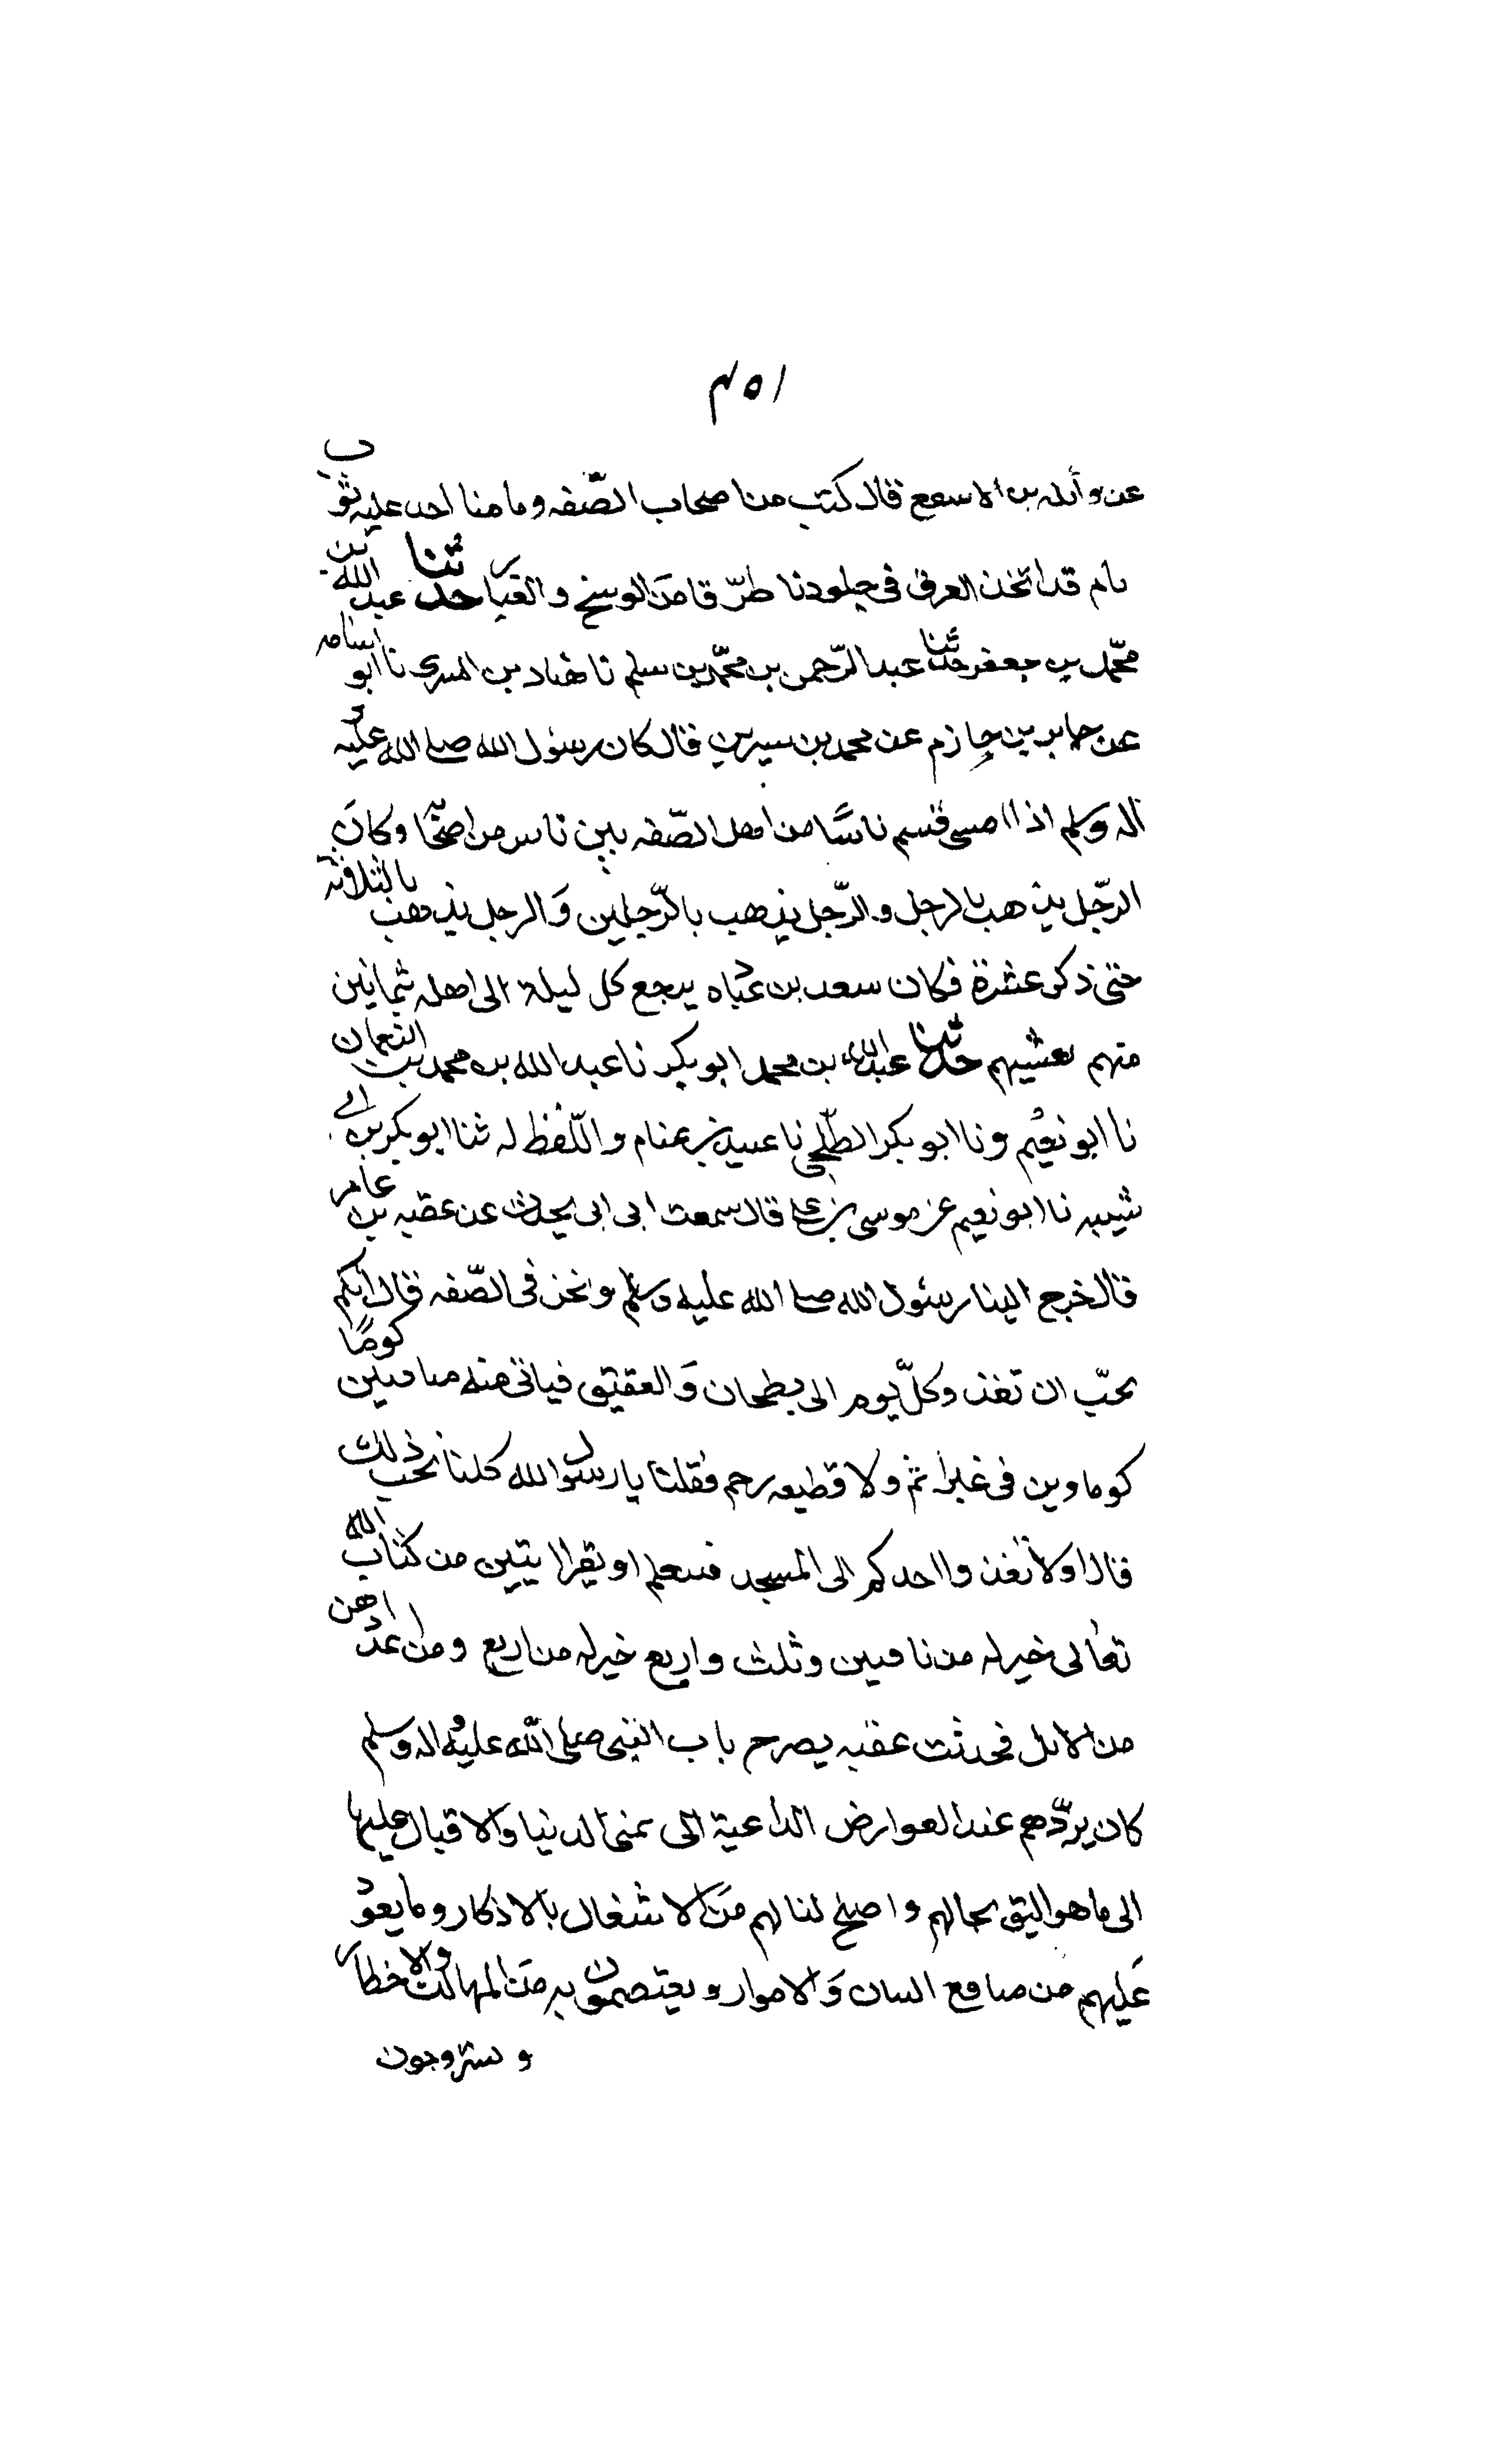 ١٥٤
عن واثله بن الاسقع قال كنت من اصحاب الصّفه وما منا احد عليه ثوب
تام قد اتخذ العرق فى جلودنا طرّقا من الوسخ والغبار حدثنا عبد الله بن
محمّد بن جعفر حدثنا عبد الرّحمن بن محمّد بن سلم نا هناد بن السرى نا ابو اسامه
عن جابر بن حازم عن محمد بن سيرين قال كان رسول الله صلى الله عليه و
اله وسلم اذا امسى قسم ناسًا من اهل الصّفه بين ناس من اصحابه وكان
الرّجل يذهب بالرجل والرّجل يذهب بالرّجلين وَالرجل يذهب بالثلاثة
حتى ذكر عشرة فكان سعد بن عباده يرجع كل ليلة الى اهله بثمانين
منهم يعشيهم حدثنا عبد الله بن محمد ابو بكر نا عبد الله بن محمد بن النعمان
نا ابو نعيم ونا ابو بكر الطّلحى نا عبيد بن غنام واللّفظ له ثنا ابو بكر بن ابى
شيبه نا ابو نعيم عن موسى بن على قال سمعت ابى ابى يحدث عن عقبه بن عامر
قال خرج الينا رسول الله صلى الله عليه وسلم ونحن فى الصّفه فقال ايكم
يحبّ ان تغذ وكلّ يوم الى بطحان وَالعقيق فياتى منه بناقتين كومًا
كوماوين فى غير اثم ولا قطيعه رحم فقلنا يا رسول الله كلنا نحب ذلك
قال اولا تغذ وااحدكم الى المسجد فيتعلم او يقرا ايتين من كتاب الله
تعالى خير له من ناقتين وثلث واربع خير له من اربع ومن اعدادهن
من الابل فحدثت عقبه يصرح باب النبى صلى الله عليه و اله وسلم
كان يردّهم عند العوارض الداعية الى تمنى الدنيا والاقبال عليها
الى ما هو اليق بحالهم واصلح لبالهم من الاشغال بالاذكار وما يعود
عَليهم من منافع البيان وَالانوار ويعتصمون به من المهالك والاخطار
و ستروجون